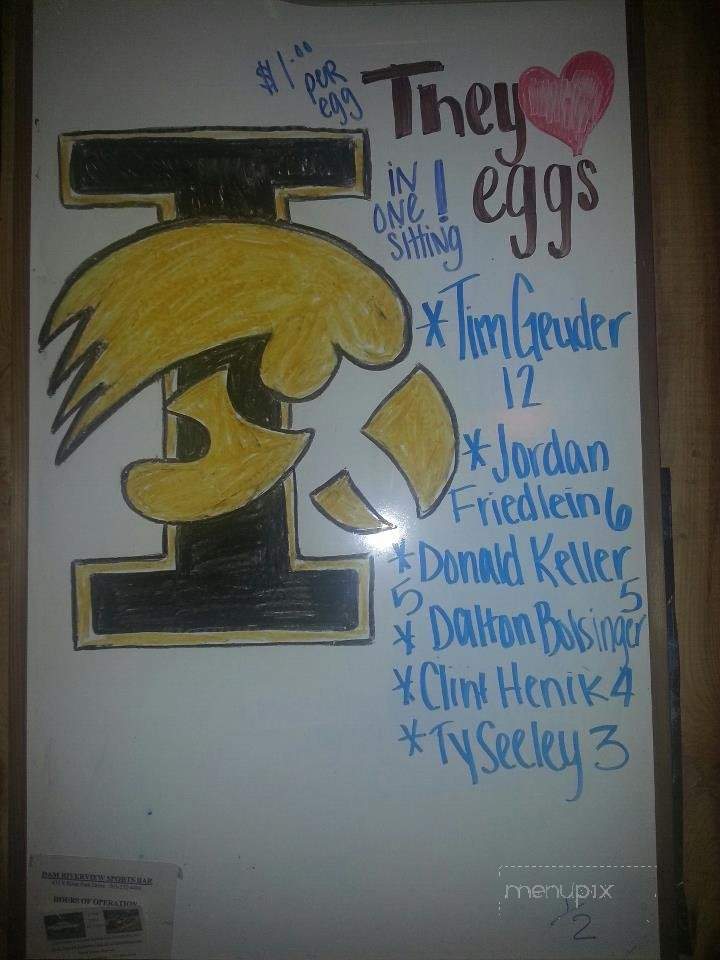 $1.00
per
egg
They
eggs
in
one !
sitting
* Tim Geuder
12
* Jordan
Friedlein 6
* Donald Keller
5 5
* Dalton Bolsinger
* Clint Henik 4
* Ty Seeley 3
I
D&M RIVERVIEW SPORTS BAR
HOURS OF OPERATION
menupix
2